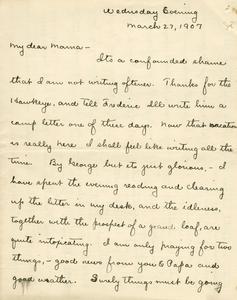 Wednesday Evening
March 27, 1907
My dear Mama -
Its a confounded shame
that I am not writing oftener. Thanks for the
Hawkeye, and tell Frederic Ill write him a
camp letter one of these days. Now that vacation
is really here I shall feel like writing all the
time. By George but its just glorious, - I
have spent the evening reading and clearing
up the litter in my desk, and the idleness,
together with the prospect of a grand loaf, are
quite intoxicating. I am only praying for two
things, - good news from you & Papa and
good weather. Surely things must be going